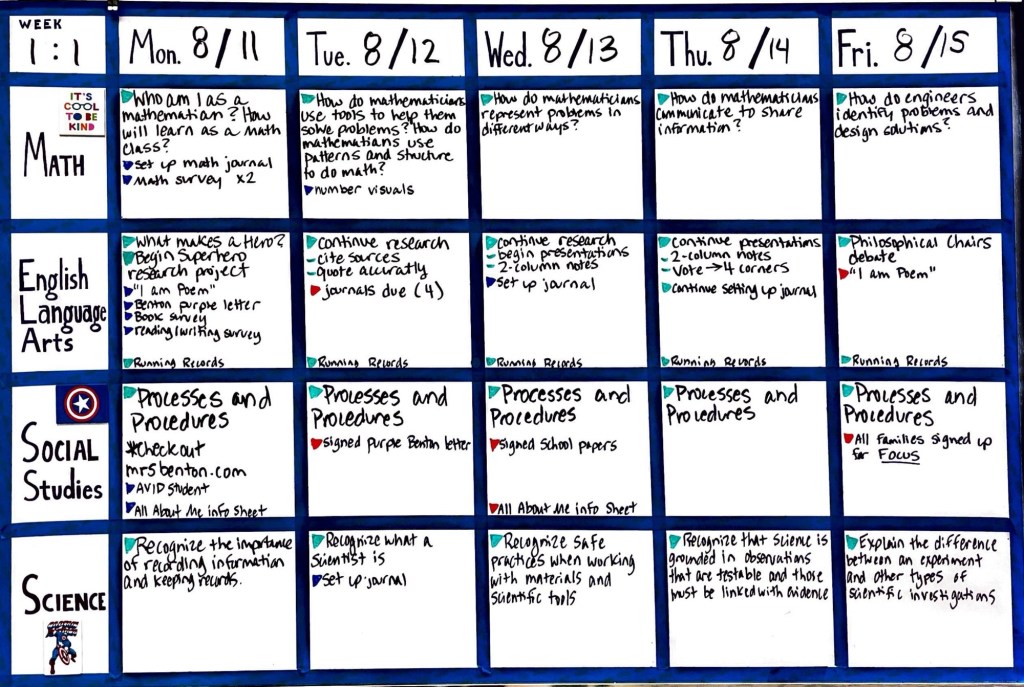 WEEK
1:1
Mon. 8/11
Tue. 8/12
Wed. 8/13
Thu. 8/14
Fri. 8/15
IT'S
COOL
TO BE
KIND
MATH
Who am I as a
mathematian? How
will learn as a math
class?
set up math journal
Math survey x2
How do mathematicians
use tools to help them
solve problems? How do
mathematians use
patterns and structure
to do math?
number visuals
How do mathematicians
represent problems in
different ways?
How do mathematicians
communicate to share
information?
How do engineers
identify problems and
design solutions?
English
Language
Arts
What makes a Hero?
Begin Superhero
research project
"I am Poem"
Benton purple letter
Book survey
reading/writing survey
Running Records
continue research
- cite sources
- quote accuratly
journals due (4)
Running Records
continue research
- begin presentations
- 2-column notes
set up journal
Running Records
continue presentations
- 2-column notes
- Vote → 4 corners
continue setting up journal
Running Records
Philosophical Chairs
debate
"I am Poem"
Running Records
SOCIAL
Studies
Processes and
Procedures
*Checkout
mrsbenton.com
AVID student
All About Me info Sheet
Processes and
Procedures
signed purple Benton letter
Processes and
Procedures
signed School papers
All About Me info Sheet
Processes and
Procedures
Processes and
Procedures
All Families signed up
for Focus
SCIENCE
Recognize the importance
of recording information
and keeping records.
Recognize what a
Scientist is
set up journal
Recognize safe
practices when working
with materials and
scientific tools
Recognize that science is
grounded in observations
that are testable and those
must be linked with evidence
Explain the difference
between an experiment
and other types of
scientific investigations